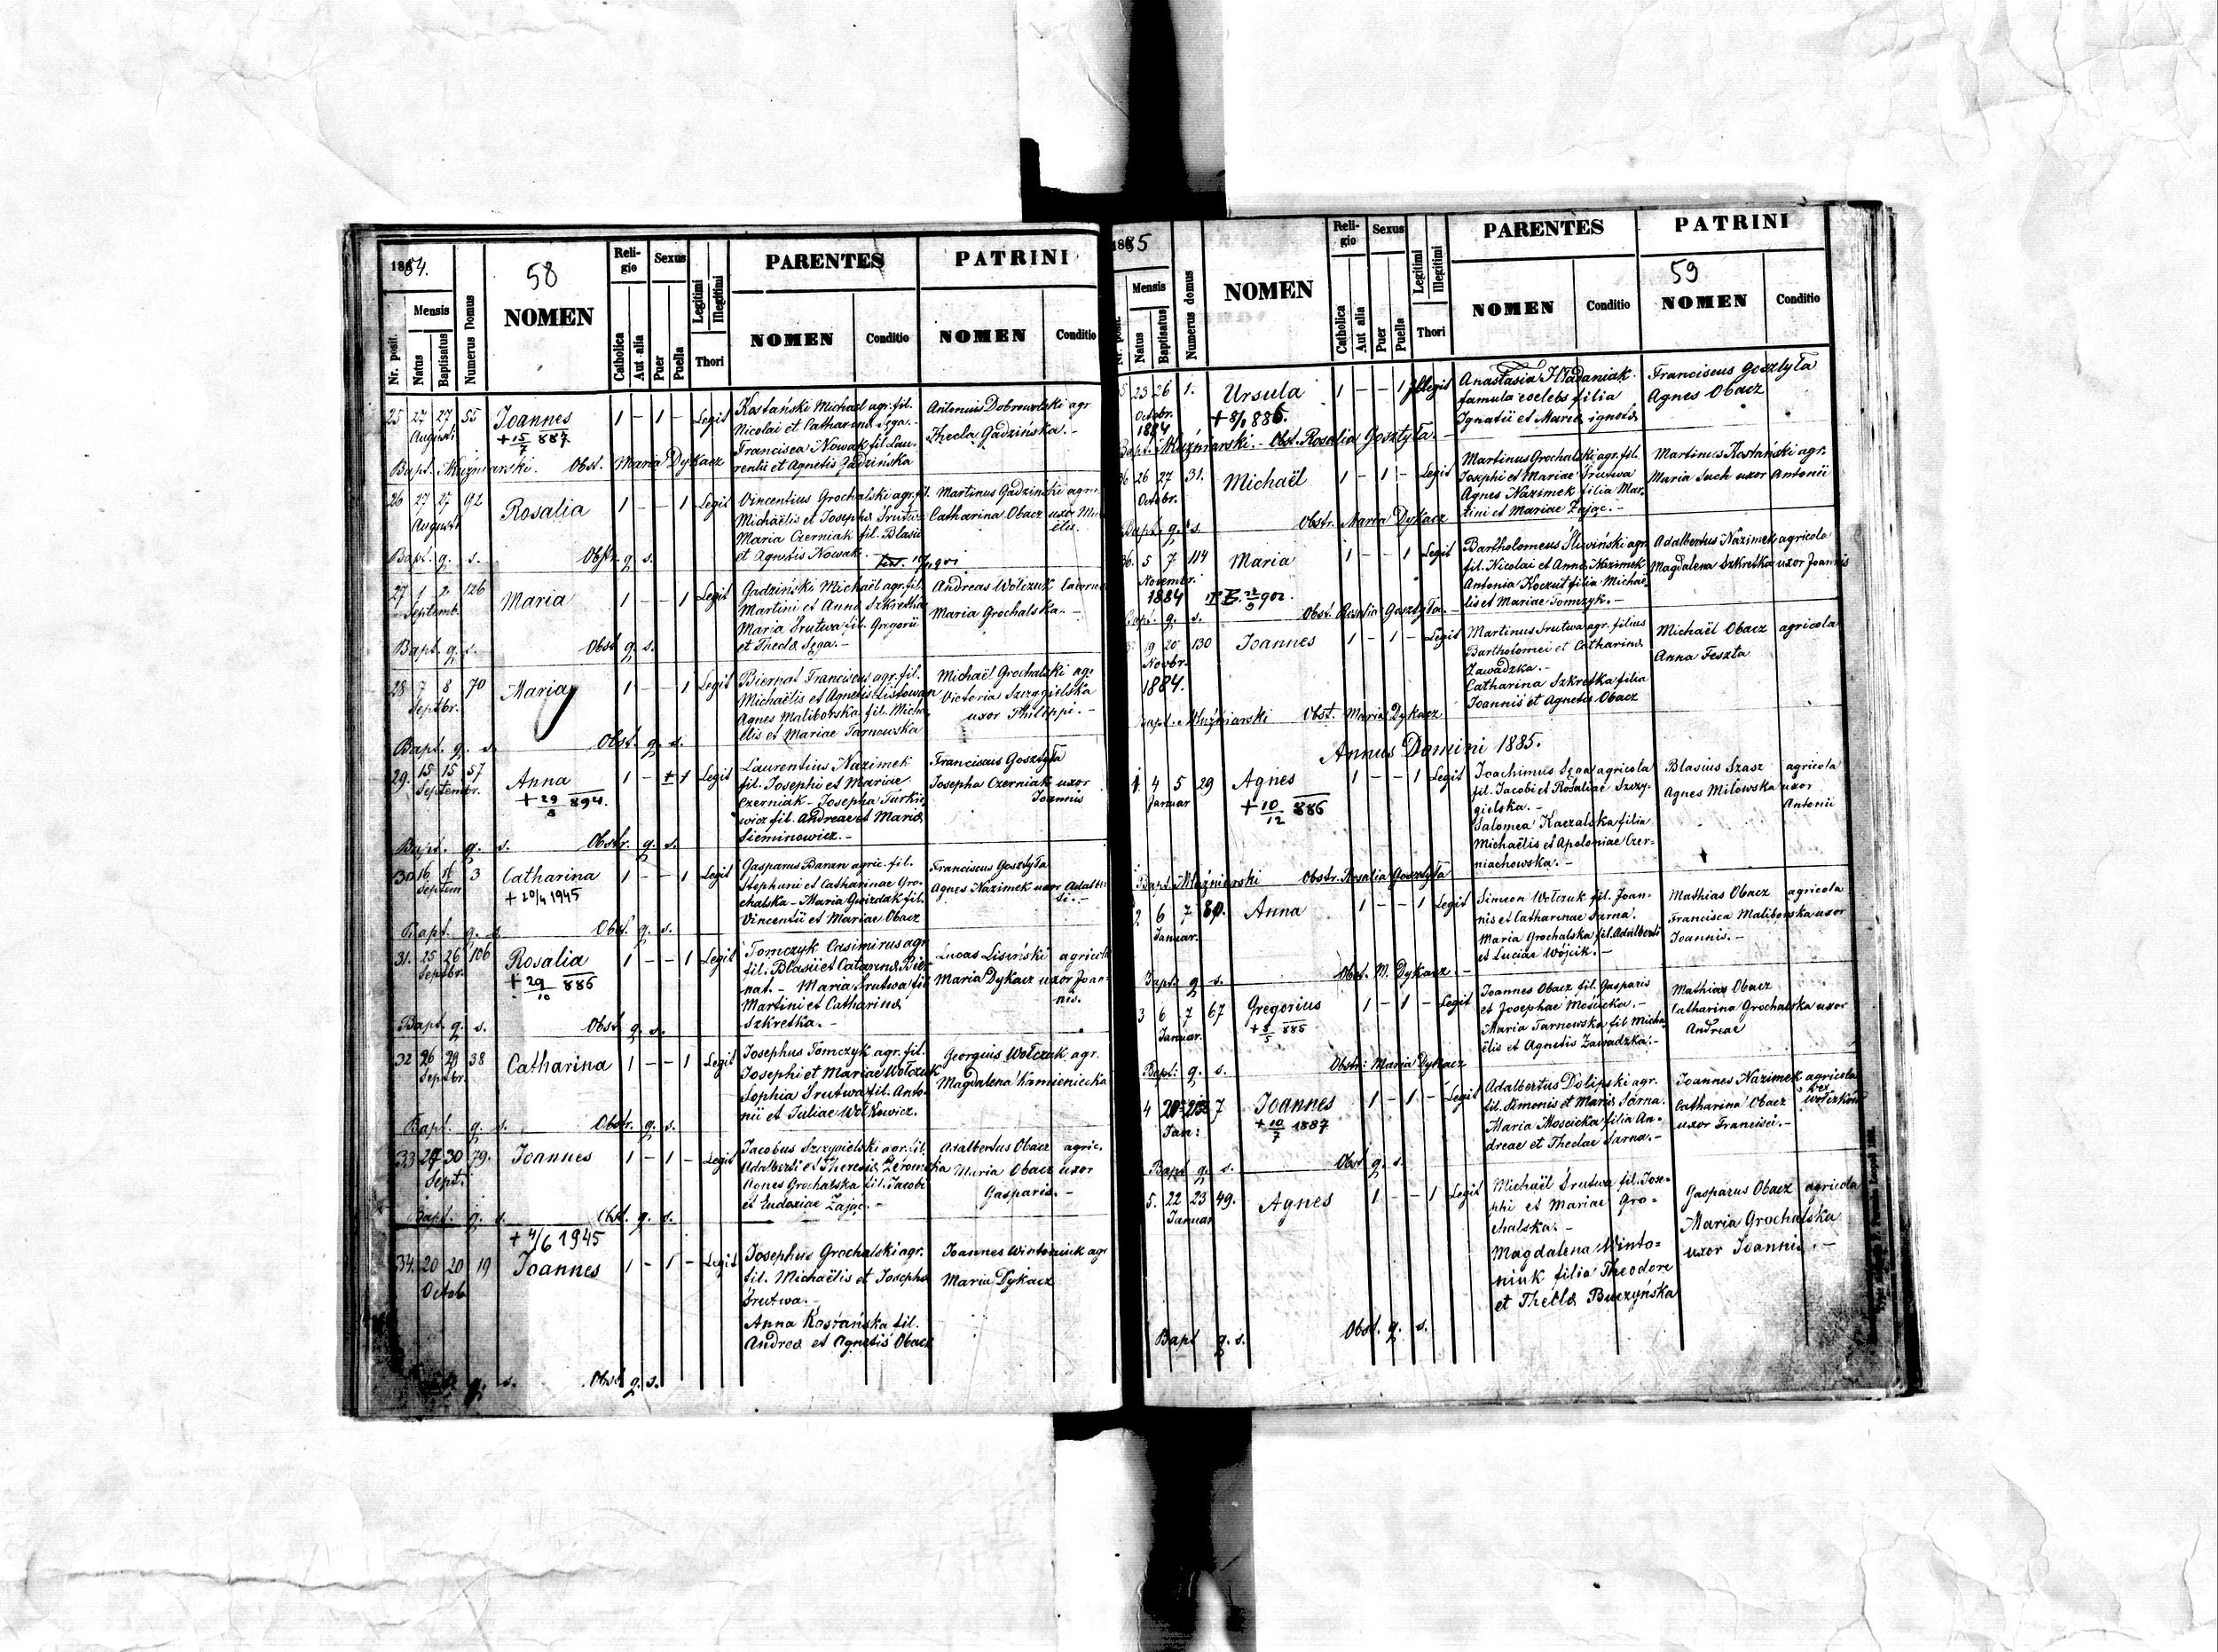 1884.
58
Mensis
Nr. posit.
Natus
Baptisatus
Numerus Domus
NOMEN
Reli-
gio
Catholica
Aut alia
Sexus
Puer
Puella
Legitimi
Illegitimi
Thori
PARENTES
NOMEN
Conditio
PATRINI
NOMEN
Conditio
25 27 27 55 Joannes 1 - 1 - Legit
Augusti
+ 15/7 887.
Kostański Michael agr. fil.
Nicolai et Catharina Sęga. -
Francisca Nowak fil. Lau-
rentii et Agnetis Gadzińska
Antonius Dobrowolski agr
Thecla Gadzińska. -
Bapt. Muźniarski. Obst. Maria Dykacz
26 27 27 92 Rosalia 1 - - 1 Legit
Augusti
Vincentius Grochalski agr. fil.
Michaëlis et Josepha Srutwa
Maria Czerniak fil. Blasii
et Agnetis Nowak.
Martinus Gadziński agric.
Catharina Obacz uxor Mi
ëlis.
Bapt. q. s. Obstr. q. s.
27 1 2 126 Maria 1 - - 1 Legit
Septemb.
Gadziński Michaël agr. fil.
Martini et Anna Szkretka
Maria Srutwa fil. Gregorii
et Thecla Sęga. -
Andreas Wołczuk
Maria Grochalska. -
Bapt. q. s. Obst q. s.
28 7 8 70 Maria 1 - - 1 Legit
Septbr.
Biernat Franciscus agr. fil.
Michaëlis et Agnetis Listowan
Agnes Maliborska fil. Micha
ëlis et Mariae Tarnowska
Michaël Grochalski agr
Victoria Szczygielska
uxor Philippi. -
Bapt. q. s. Obst. q. s.
29. 15 15 57 Anna 1 - 1 Legit
Septembr.
+ 29/8 894.
Laurentius Nazimek
fil. Josephi et Mariae
Czerniak - Josepha Turkie
wicz fil. Andreae et Maria
Sieminowicz. -
Franciscus Gosztyła
Josepha Czerniak uxor
Joannis
Bapt. q. s. Obstr. q. s.
30 16 16 3 Catharina 1 - - 1 Legit
Septem
+ 20/4 1945
Gasparus Baran agric. fil.
Stephani et Catharinae Gro-
chalska - Maria Gwizdak fil.
Vincentii et Mariae Obacz
Franciscus Gosztyła
Agnes Nazimek uxor Adalber
ti. -
Bapt. q. s. Obst. q. s.
31. 25 26 106 Rosalia 1 - - 1 Legit
Septbr.
+ 29/10 886
Tomczyk Casimirus agr
fil. Blasii et Catarina Bier
nat. - Maria Srutwa fil
Martini et Catharina
Szkretka. -
Lucas Lisiński agricola
Maria Dykacz uxor Joan-
nis.
Bapt. q. s. Obst q. s.
32 26 29 38 Catharina 1 - - 1 Legit
Septbr.
Josephus Tomczyk agr. fil.
Josephi et Mariae Wołczuk
Sophia Srutwa fil. Anto-
nii et Juliae Wołkowicz.
Georgius Wołczuk agr.
Magdalena Kamieniecka
Bapt. q. s. Obstr. q. s.
33 29 30 79. Joannes 1 - 1 - Legit
Sept.
Jacobus Szczygielski agr. fil.
Adalberti et Theresia Żeromska
Agnes Grochalska fil. Jacobi
et Eudoxiae Zając. -
Adalbertus Obacz agric.
Maria Obacz uxor
Gasparis. -
Bapt. q. s. Obst. q. s.
+ 4/6 1945
34. 20 20 19 Joannes 1 - 1 - Legit
Octob
Josephus Grochalski agr.
fil. Michaëlis et Josepha
Srutwa. -
Anna Kostańska fil.
Andrea et Agnetis Obacz
Joannes Wintoniuk agr
Maria Dykacz
q. s. Obst q. s.
1885
59
Mensis
Nr. posit.
Natus
Baptisatus
Numerus domus
NOMEN
Reli-
gio
Catholica
Aut alia
Sexus
Puer
Puella
Legitimi
Illegitimi
Thori
PARENTES
NOMEN
Conditio
PATRINI
NOMEN
Conditio
5 23 26 1. Ursula 1 - - 1 Illegit
Octobr.
1884
+ 8/1 886.
Anastasia Hładaniak
famula coelebs filia
Ignatii et Maria ignota
Franciscus Gosztyła
Agnes Obacz
Bapt. Muźniarski. - Obst. Rosalia Gosztyła. -
36 26 27 31. Michaël 1 - 1 - Legit
Octobr.
Martinus Grochalski agr. fil.
Josephi et Mariae Srutwa
Agnes Nazimek filia Mar-
tini et Mariae Zając. -
Martinus Kostański agr.
Maria Such uxor Antonii
Bapt. q. s. Obstr. Maria Dykacz
36. 5 7 114 Maria 1 - - 1 Legit
Novembr.
1884
902.
Bartholomeus Śliwiński agr.
fil. Nicolai et Anna Nazimek
Antonia Koczut filia Michaë-
lis et Mariae Tomczyk. -
Adalbertus Nazimek agricola
Magdalena Szkretka uxor Joannis
Bapt. q. s. Obst. Rosalia Gosztyła. -
19 20 130 Joannes 1 - 1 - Legit
Novbr.
1884.
Martinus Srutwa agr. filius
Bartholomei et Catharina
Zawadzka. -
Catharina Szkretka filia
Joannis et Agnetis Obacz
Michaël Obacz agricola
Anna Feszta
Bapt. Muźniarski Obst. Maria Dykacz
Annus Domini 1885.
1. 4 5 29 Agnes 1 - - 1 Legit
Januar
+ 10/12 886
Joachimus Sęga agricola
fil. Jacobi et Rosaliae Szczy-
gielska. -
Salomea Kaczalska filia
Michaëlis et Apoloniae Czer-
niachowska. -
Blasius Szasz agricola
Agnes Milowska uxor
Antonii
Bapt. Muźniarski Obstr. Rosalia Gosztyła
2 6 7 80. Anna 1 - - 1 Legit
Januar.
Simeon Wołczuk fil. Joan-
nis et Catharinae Sarna.
Maria Grochalska fil. Adalberti
et Luciae Wójcik. -
Mathias Obacz agricola
Francisca Maliborska uxor
Joannis. -
Bapt. q. s. Obst. M. Dykacz -
3 6 7 67 Gregorius 1 - 1 - Legit
Januar.
885
Joannes Obacz fil. Gasparis
et Josephae Mościcka. -
Maria Tarnowska fil Micha
ëlis et Agnetis Zawadzka. -
Mathias Obacz
Catharina Grochalska uxor
Andreae
Bapt: q. s. Obstr: Maria Dykacz
4 7 Joannes 1 - 1 - Legit
Jan:
+ 10/7 1887
Adalbertus Dolipski agr.
fil. Simonis et Maria Sarna.
Maria Mościcka filia An-
dreae et Theclae Sarna. -
Joannes Nazimek agricola
Catharina Obacz
uxor Francisci. -
Bapt q. s. Obst q. s.
5. 22 23 49. Agnes 1 - - 1 Legit
Januar
Michaël Srutwa fil. Jose-
phi et Mariae Gro-
chalska. -
Magdalena Winto-
niuk filia Theodore
et Thecla Buczyńska
Gasparus Obacz agricola
Maria Grochalska
uxor Joannis. -
Bapt q. s. Obst. q. s.